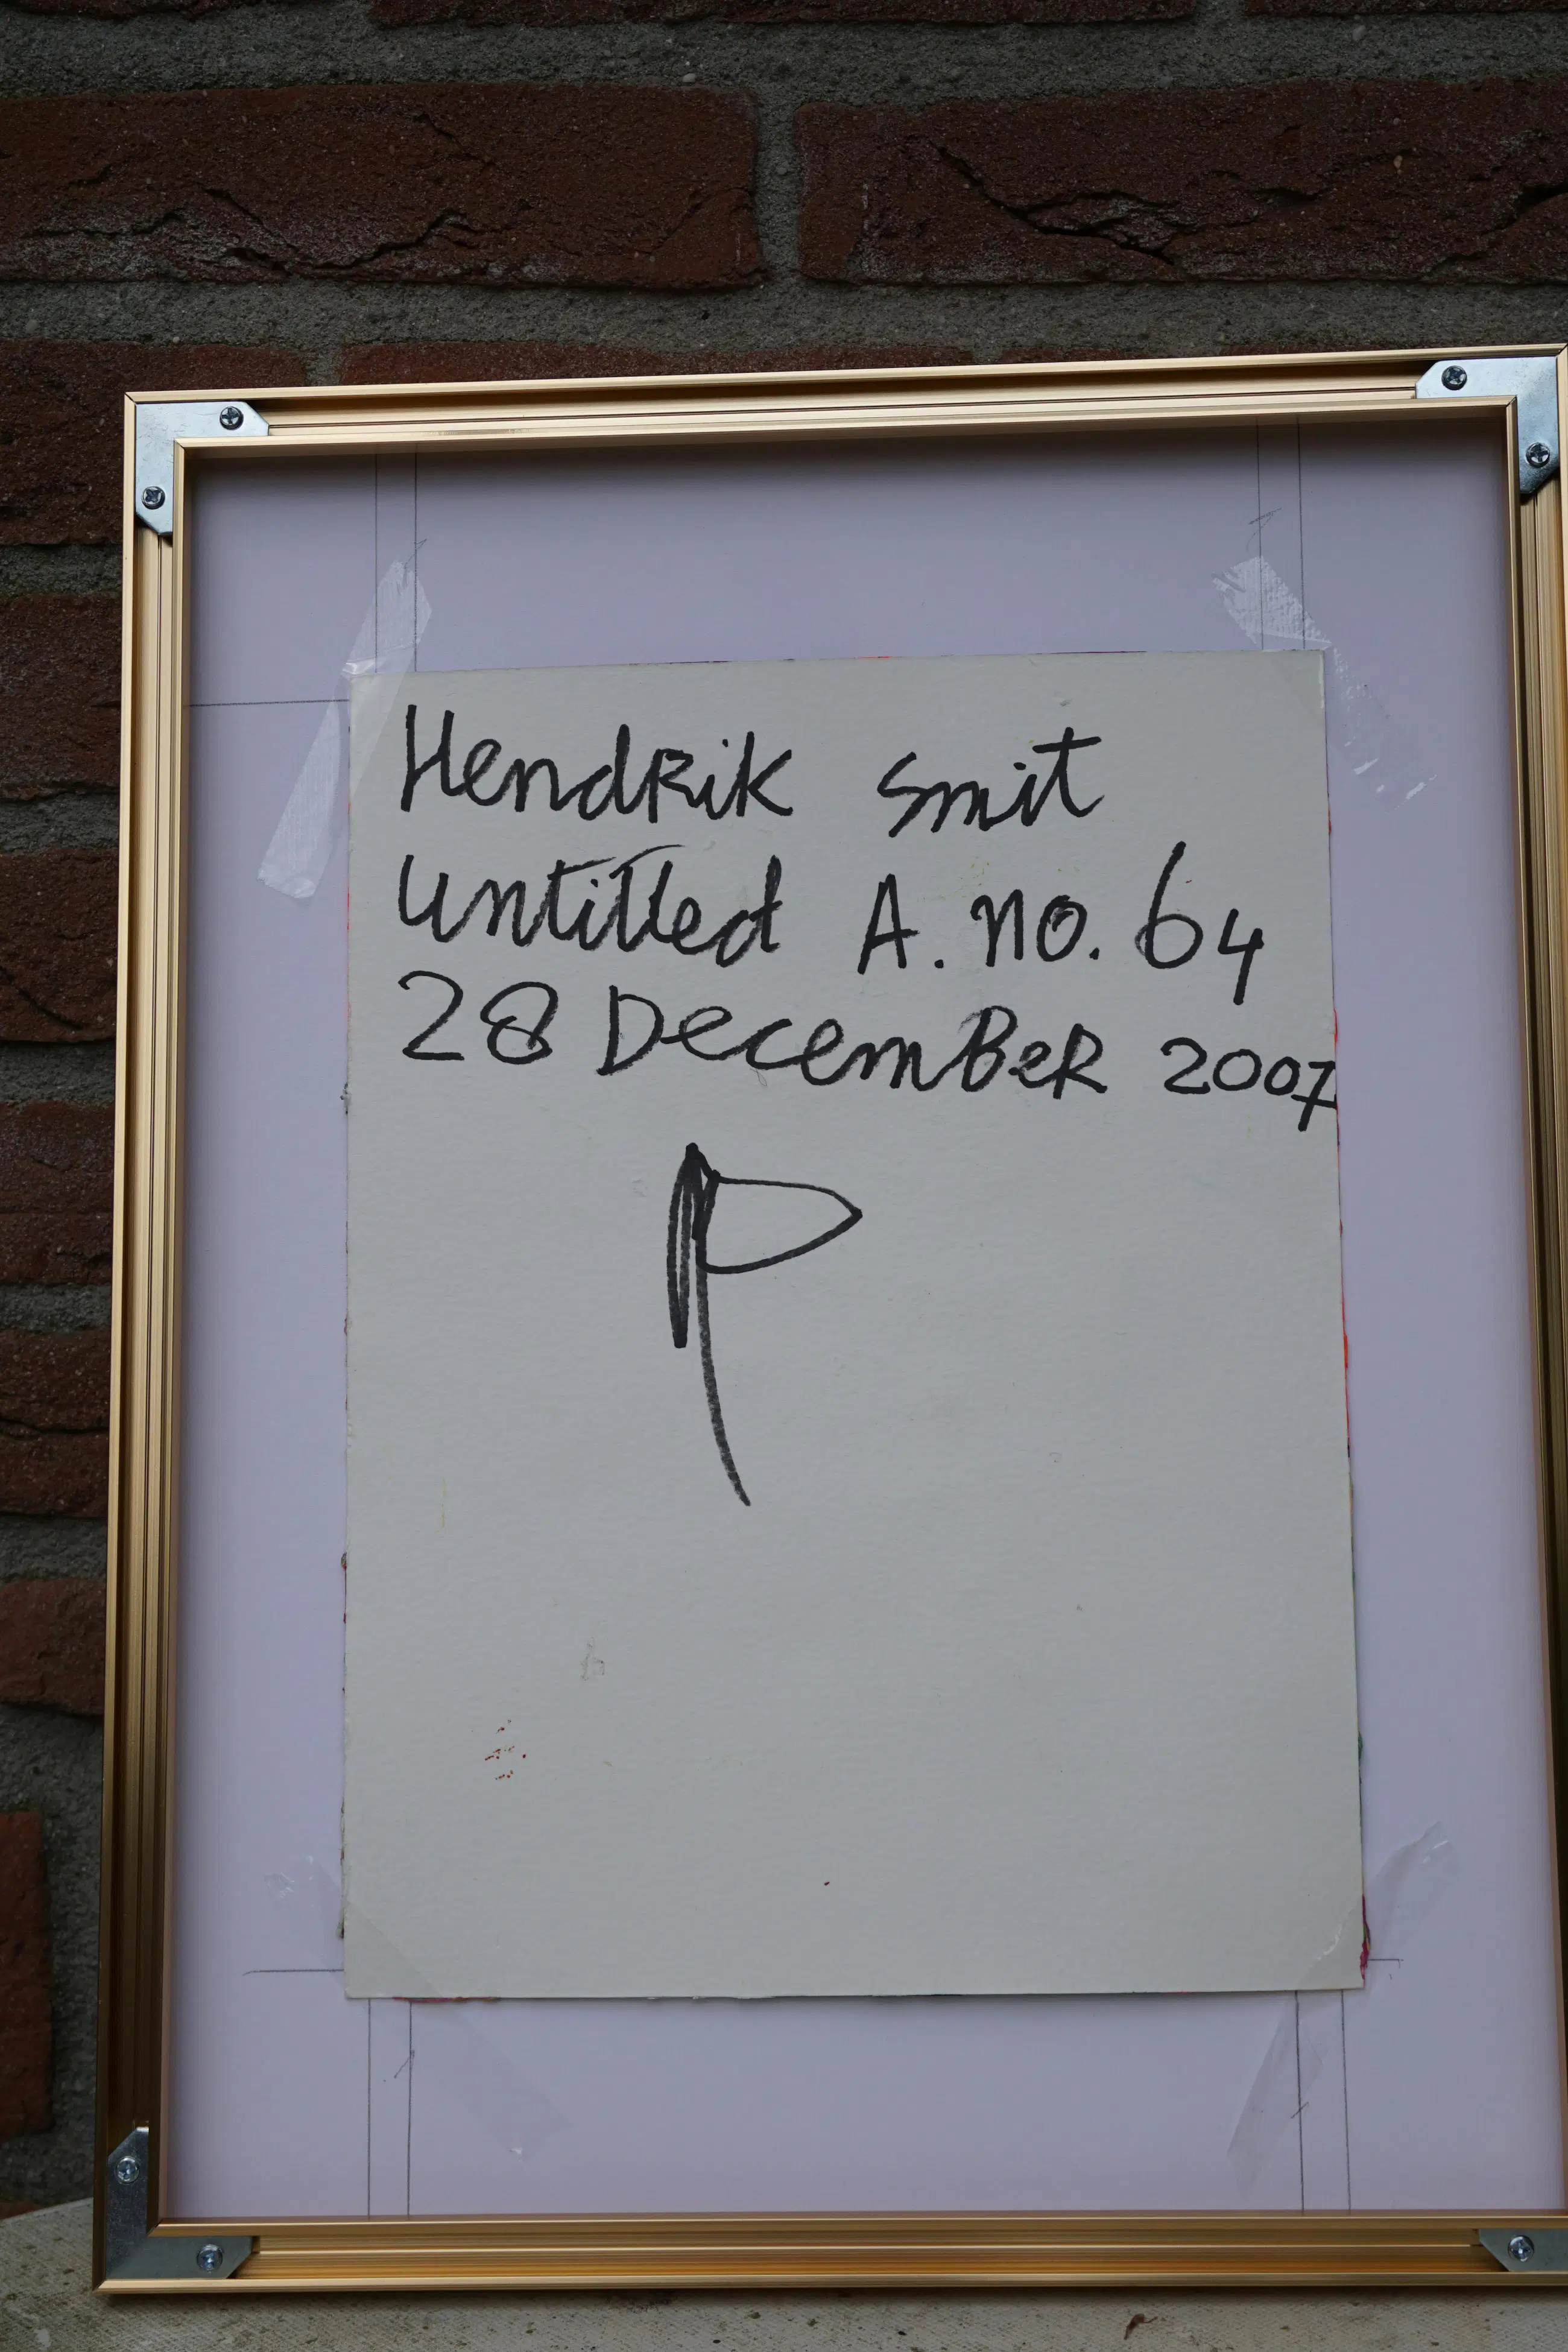 Hendrik Smit
Untitled A. no. 64
28 December 2007